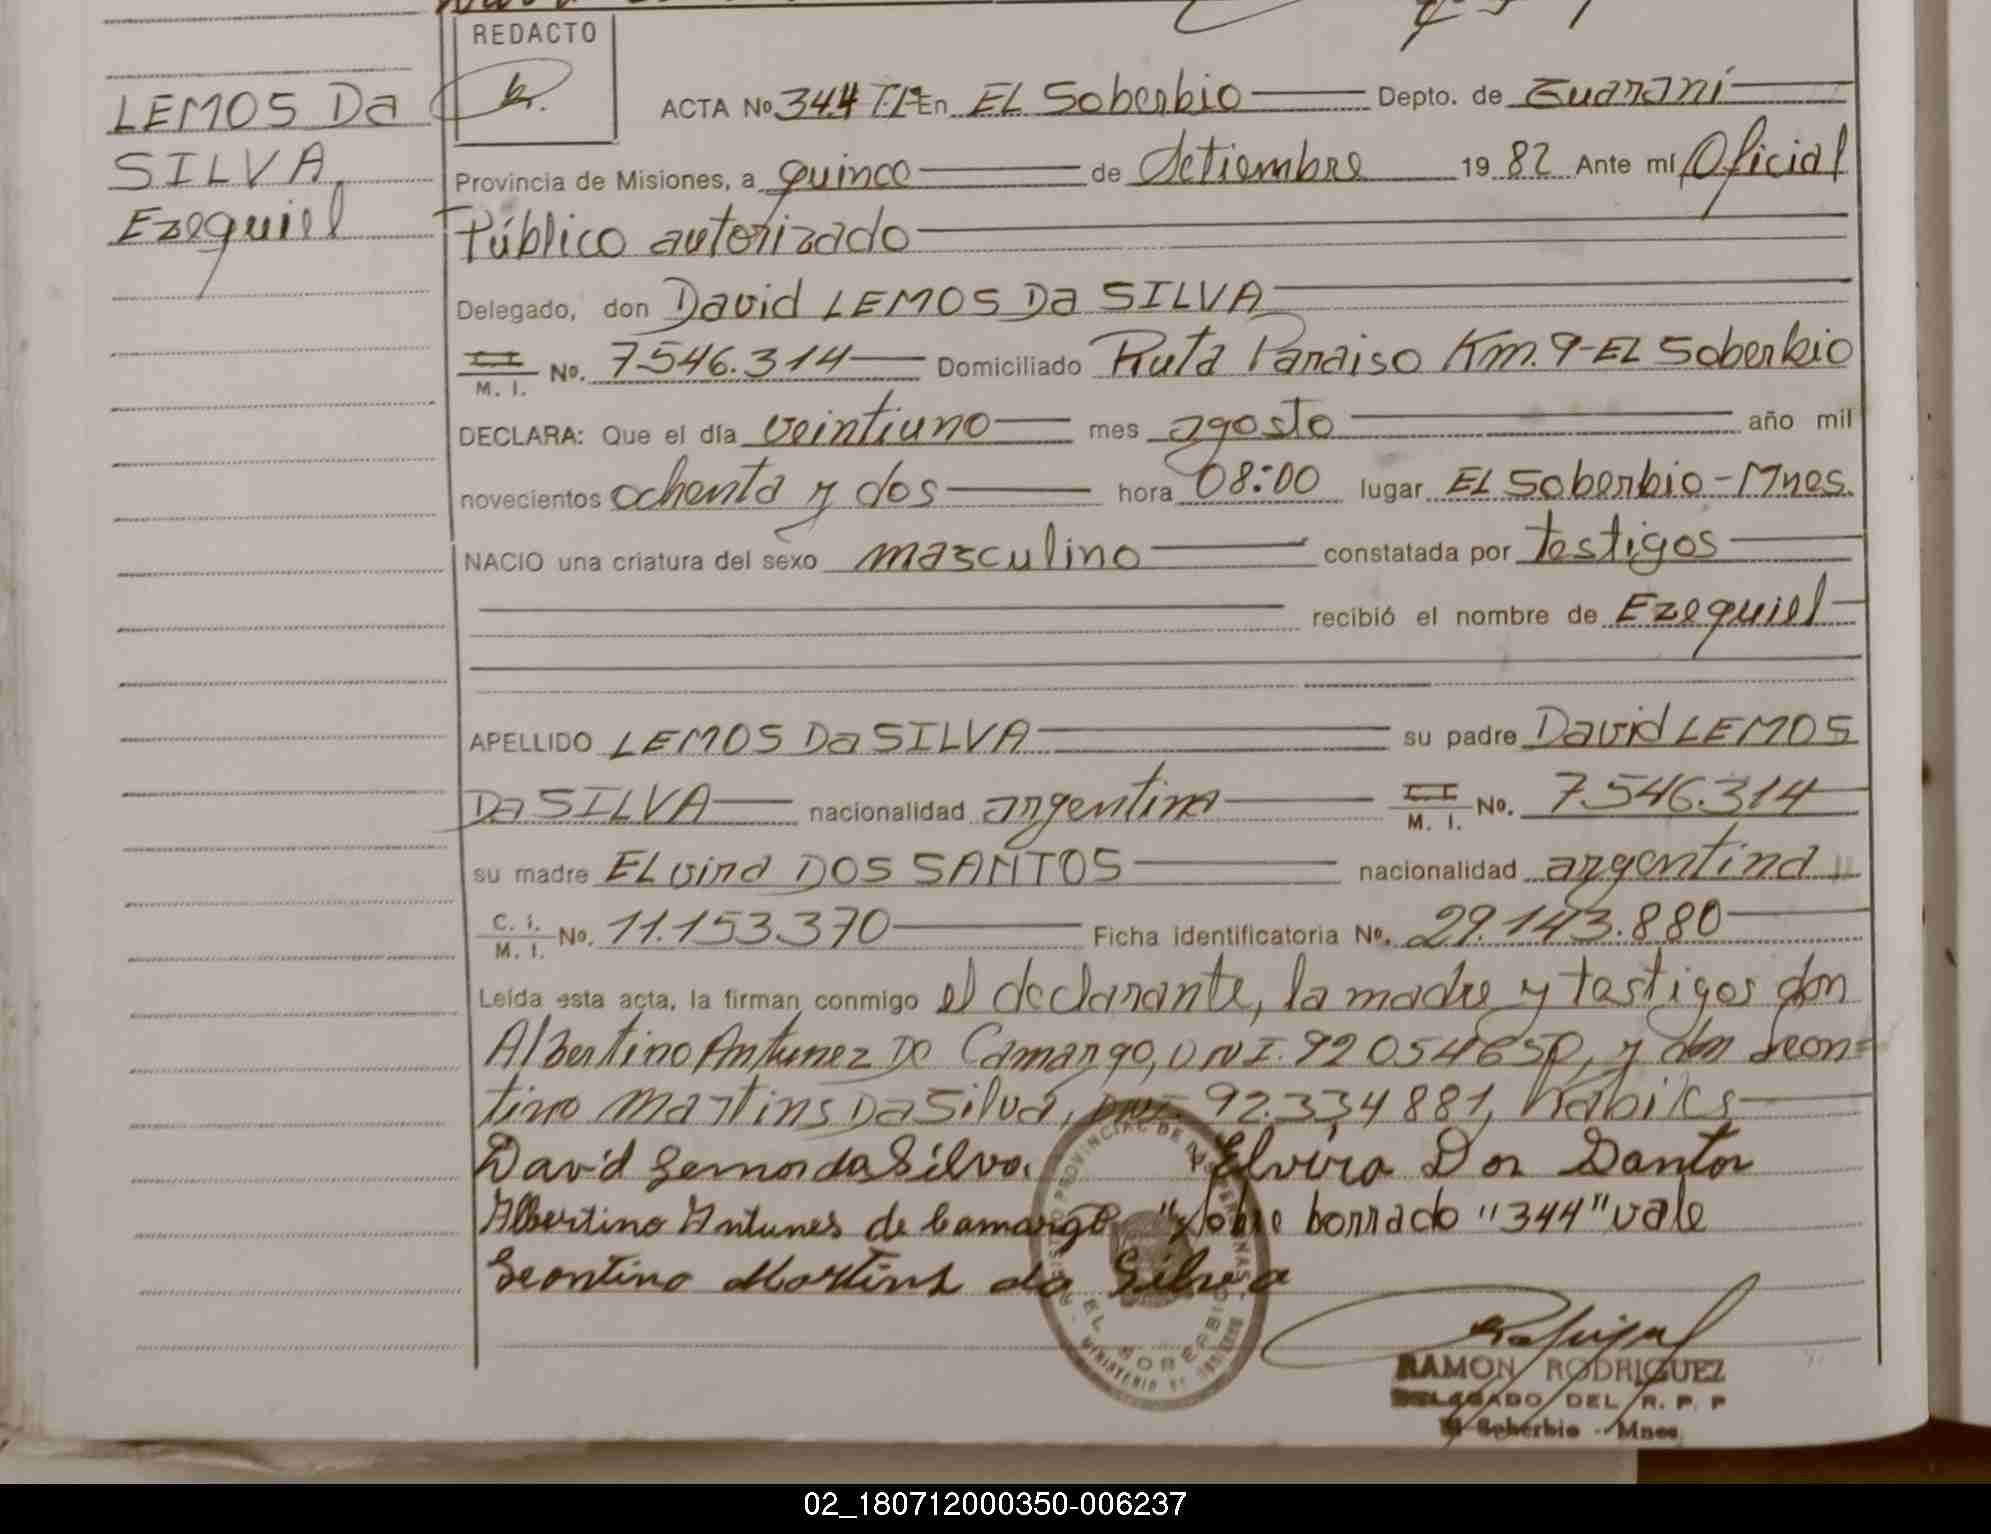 REDACTO
LEMOS Da
SILVA
Ezequiel
ACTA No 344 T.1º En EL Soberbio Depto. de Guaraní
Provincia de Misiones, a quince de Setiembre 1982 Ante mí Oficial
Público autorizado
Delegado, don David LEMOS Da SILVA
M. I. No. 7.546.314 Domiciliado Ruta Paraiso Km. 9-EL Soberbio
DECLARA: Que el día veintiuno mes agosto año mil
novecientos ochenta y dos hora 08:00 lugar EL Soberbio-Mnes.
NACIO una criatura del sexo masculino constatada por testigos
recibió el nombre de Ezequiel
APELLIDO LEMOS Da SILVA su padre David LEMOS
Da SILVA nacionalidad argentina C. I. M. I. No. 7.546.314
su madre ELvira DOS SANTOS nacionalidad argentina
C. I. M. I. No. 11.153.370 Ficha identificatoria No. 29.143.880
Leída esta acta, la firman conmigo el declarante, la madre y testigos don
Albertino Antunez De Camargo, DNI. y don Leon-
tino Martins Da Silva, DNI. 92.334 881, habiles
David Lemos da Silva. Elvira Dos Santos
Albertino Antunes de Camargo "Sobre borrado "344" vale
Leontino Martins da Silva
REGISTRO PROVINCIAL DE LAS PERSONAS
EL SOBERBIO
MINISTERIO DE GOBIERNO
RAMON RODRIGUEZ
DELEGADO DEL R. P. P
El Soberbio - Mnes.
02_180712000350-006237